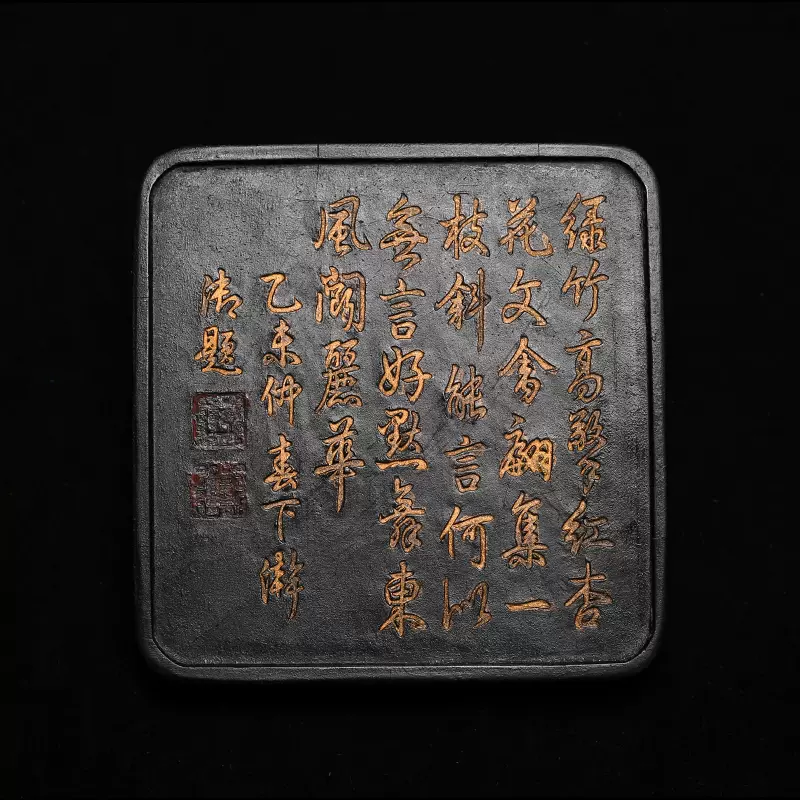 绿竹高红杏
花文禽翩集一
枝斜能言何以
無言好默舞東
風闘麗華
乙未仲春下澣
御題